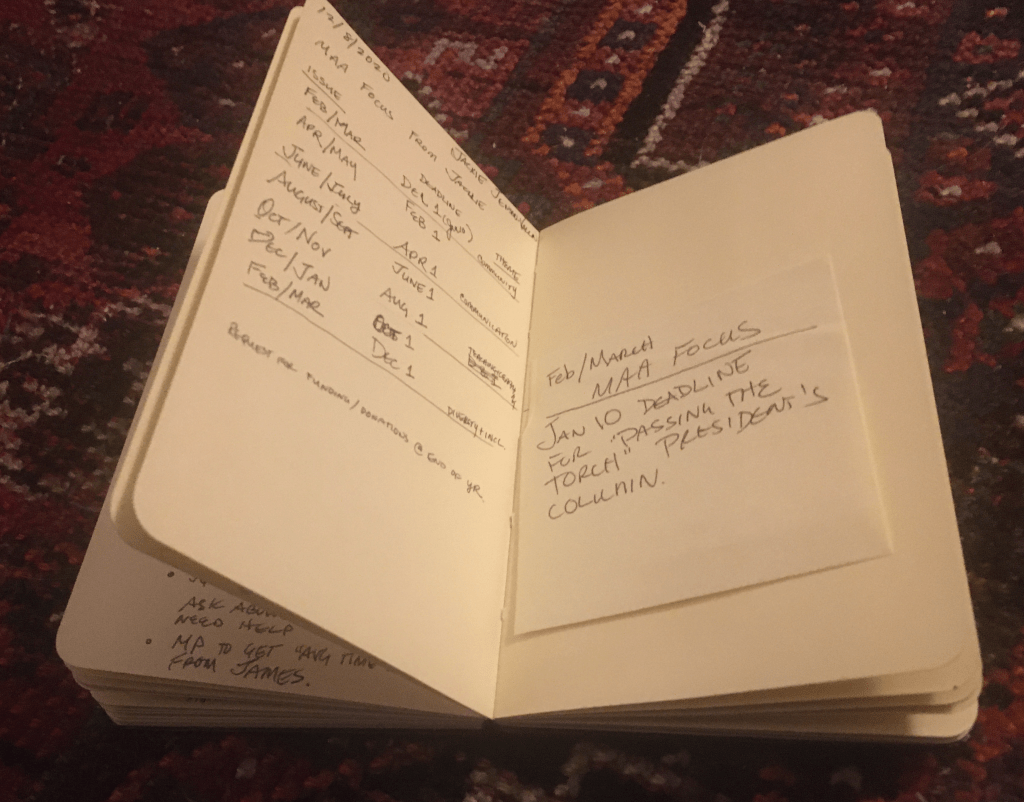 12/8/2020
MAA FOCUS FROM JACKIE
ISSUE DEADLINE THEME
FEB/MAR DEC 1 COMMUNITY
APR/MAY FEB 1
JUNE/JULY APR 1 COMMUNICATION
AUGUST/SEPT JUNE 1
OCT/NOV AUG 1
DEC/JAN OCT 1
FEB/MAR DEC 1 DIVERSITY + INCL.
REQUEST FOR FUNDING/DONATIONS @ END OF YR.
Feb/MARCH
MAA FOCUS
JAN 10 DEADLINE
FOR "PASSING THE
TORCH" PRESIDENT'S
COLUMN.
ASK
NEED HELP
• MP TO GET "AVG TIME
FROM JAMES.